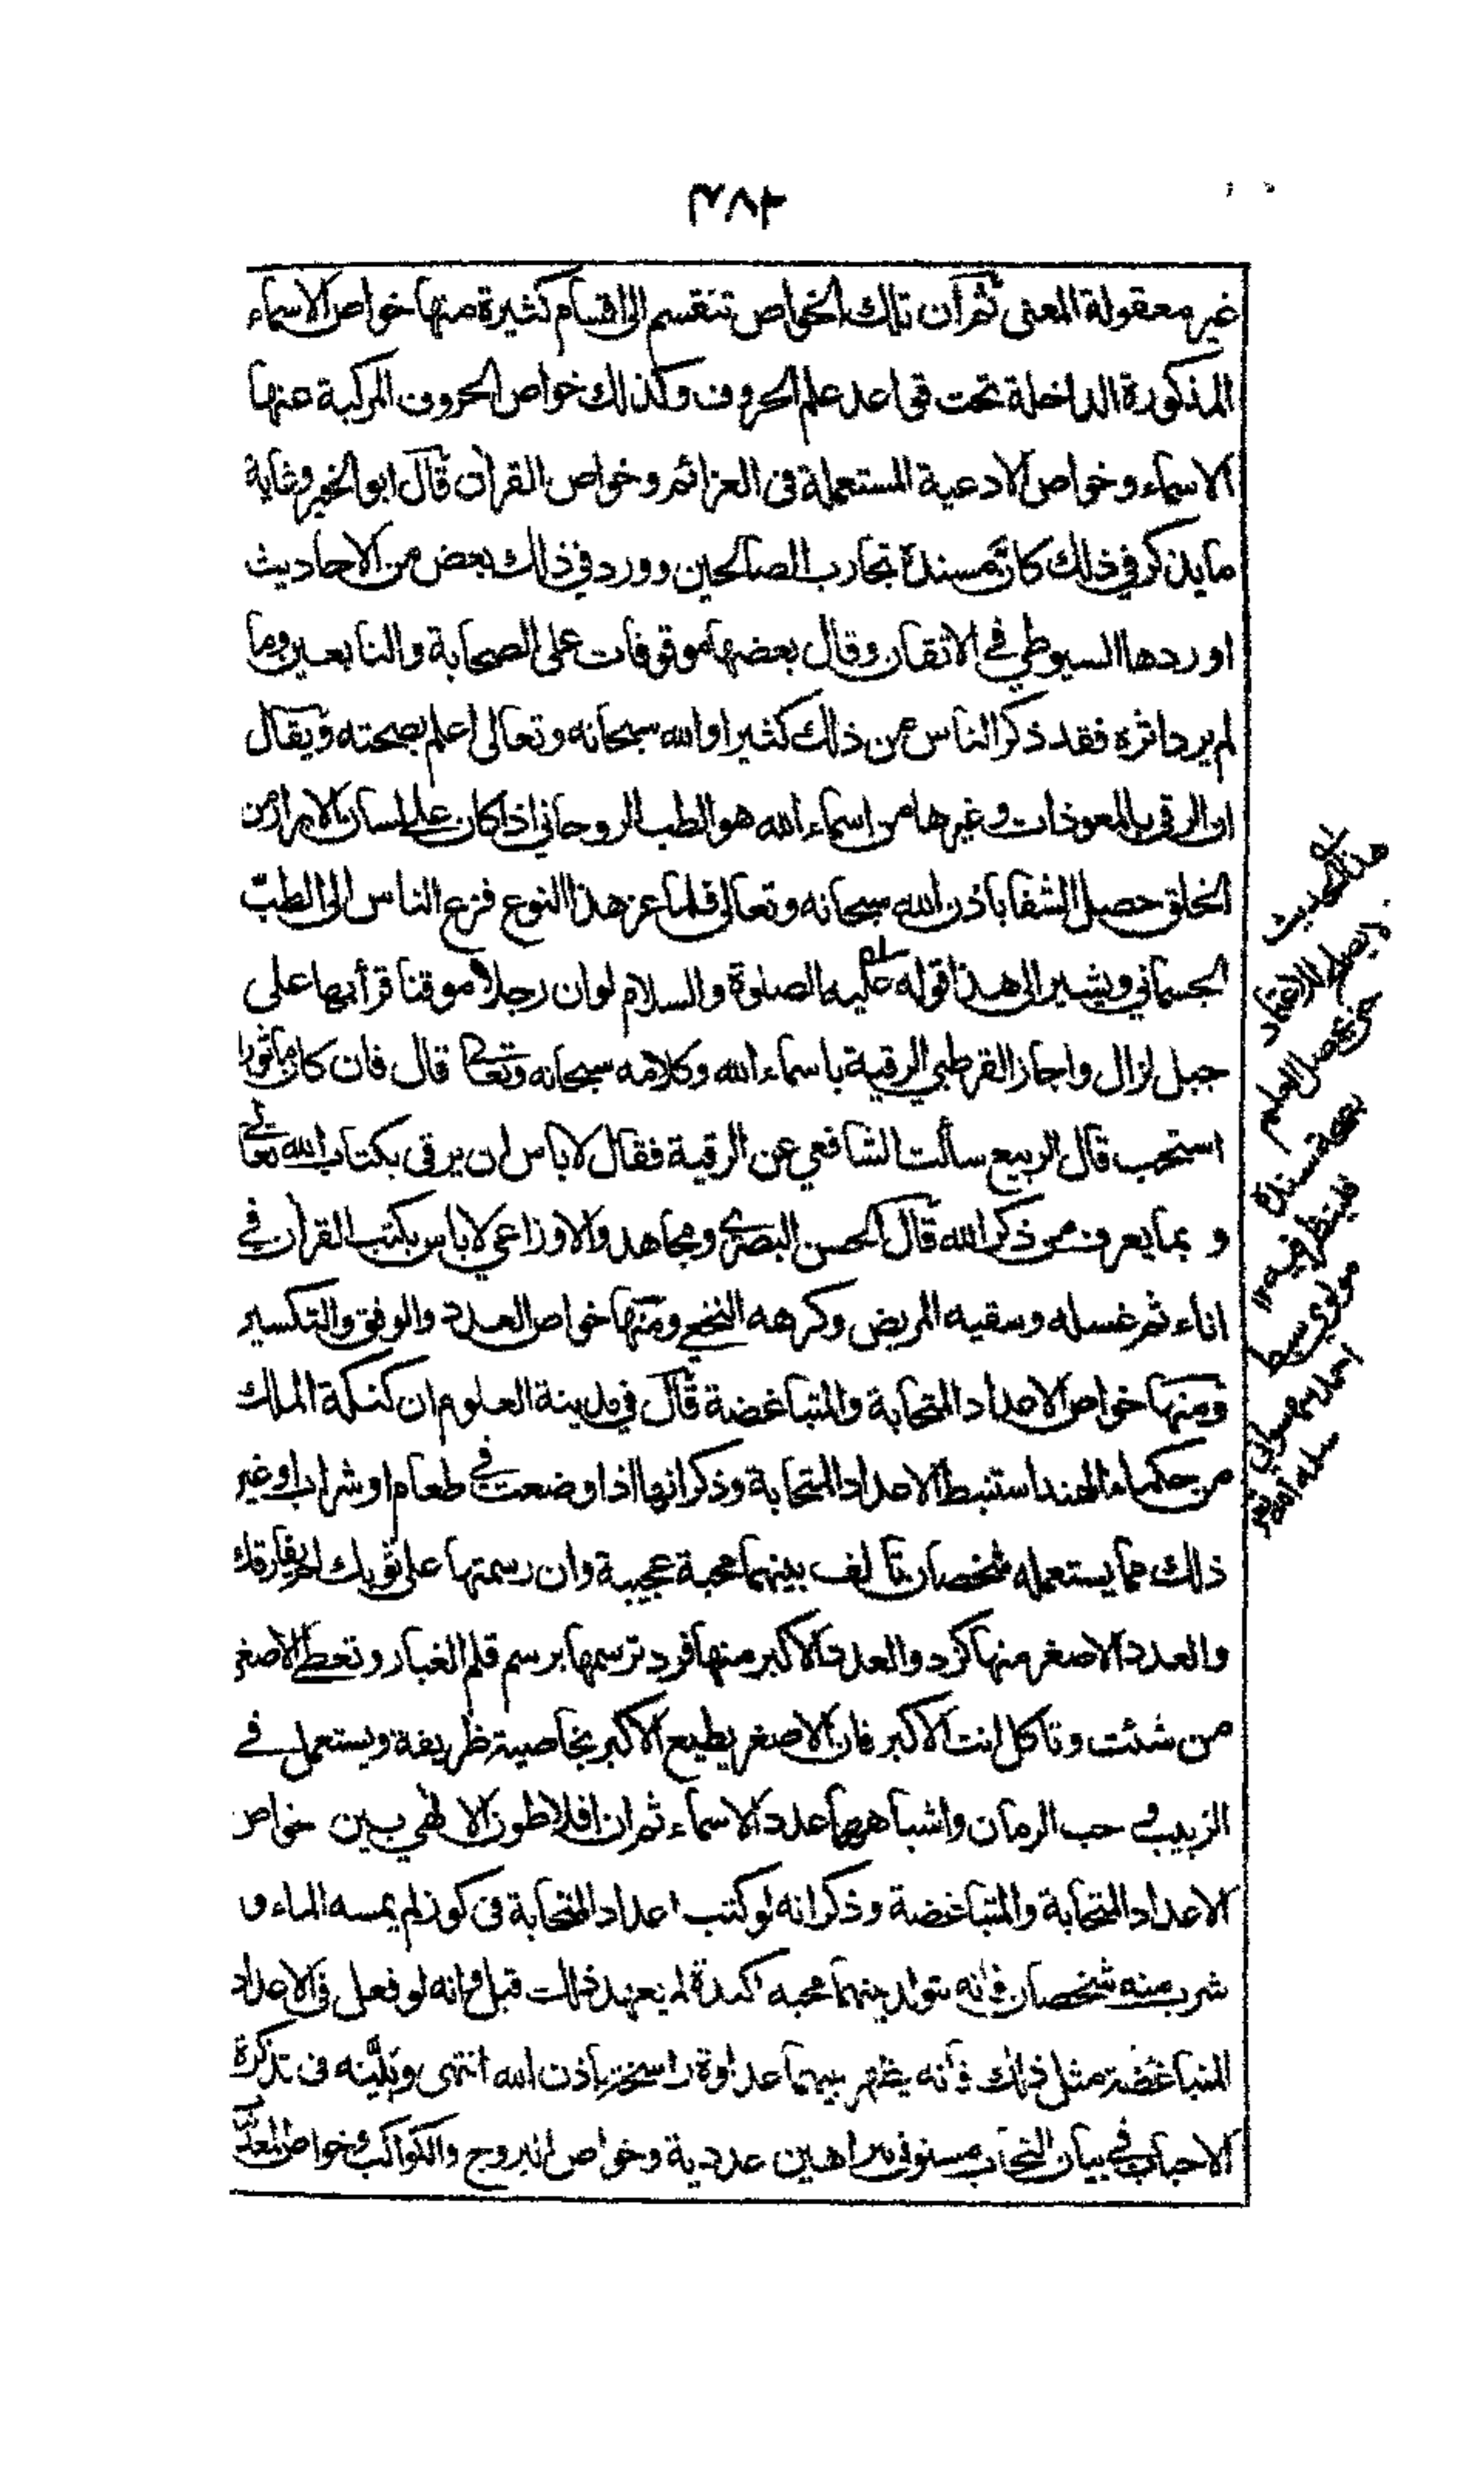 ٣٨٢
غير معقولة المعنى ثم ان تلك الخواص تنقسم الى اقسام كثيرة منها خواص الاسماء
المذكورة الداخلة تحت قواعد علم الحروف وكذلك خواص الحروف المركبة عنها
الاسماء وخواص الادعية المستعملة فى العزائم وخواص القران قال ابو الخير وغاية
ما يذكر في ذلك كان مسنده تجارب الصالحين وورد في ذلك بعض من الاحاديث
اوردها السيوطي في الاتقان وقال بعضها موقوفات على الصحابة والتابعين وما
لم يرد اثره فقد ذكر الناس من ذلك كثيرا والله سبحانه وتعالى اعلم بصحته ويقال
او الرقى بالمعوذات وغيرها من اسماء الله هو الطب الروحاني اذا كان على لسان الابرار من
الخلق حصل الشفا باذن الله سبحانه وتعالى فلما عز هذا النوع فزع الناس الى الطبّ
الجسماني ويشير الى هذا قوله عليه الصلوة والسلام لو ان رجلا موقنا قرأ بها على
جبل لزال واجاز القرطبي الرقية باسماء الله وكلامه سبحانه وتعالى قال فان كان ماثورا
استحب قال الربيع سألت الشافعي عن الرقية فقال لا باس ان يرقى بكتاب الله تعالى
و بما يعرف من ذكر الله قال الحسن البصري ومجاهد والاوزاعي لا باس بكتب القران في
اناء ثم غسله وسقيه المريض وكرهه النخعي ومنها خواص العدد والوفق والتكسير
ومنها خواص الاعداد المتحابة والمتباغضة قال في مدينة العلوم ان كنكة الملك
من حكماء الهند استنبط الاعداد المتحابة وذكر انها اذا وضعت في طعام او شراب او غير
ذلك مما يستعمله شخصان تالف بينهما محبة عجيبة وان رسمتها على ثوبك لم يفارقك
والعدد الاصغر منها كرد والعدد الاكبر منها فرد ترسمها برسم قلم الغبار وتعطى الاصغر
من شئت وتاكل انت الاكبر فان الاصغر يطيع الاكبر بخاصية ظريفة ويستعمل في
الزبيب و حب الرمان واشباههما عدد الاسماء ثم ان افلاطون الالهي بين خواص
الاعداد المتحابة والمتباغضة وذكر انه لو كتب اعداد المتحابة فى كوز لم يمسه الماء و
شرب منه شخصان فانه يتولد بينهما محبه اكيدة لم يعهد ذلك قبل وانه لو فعل فى الاعداد
المتباغضة مثل ذلك فانه يظهر بينهما عداوة راسخة باذن الله انتهى وبيّنه فى تذكرة
الاحباب في بيان التحاب مستوفى ببراهين عددية وخواص البروج والكواكب وخواص المعدنيات
هذا الحديث